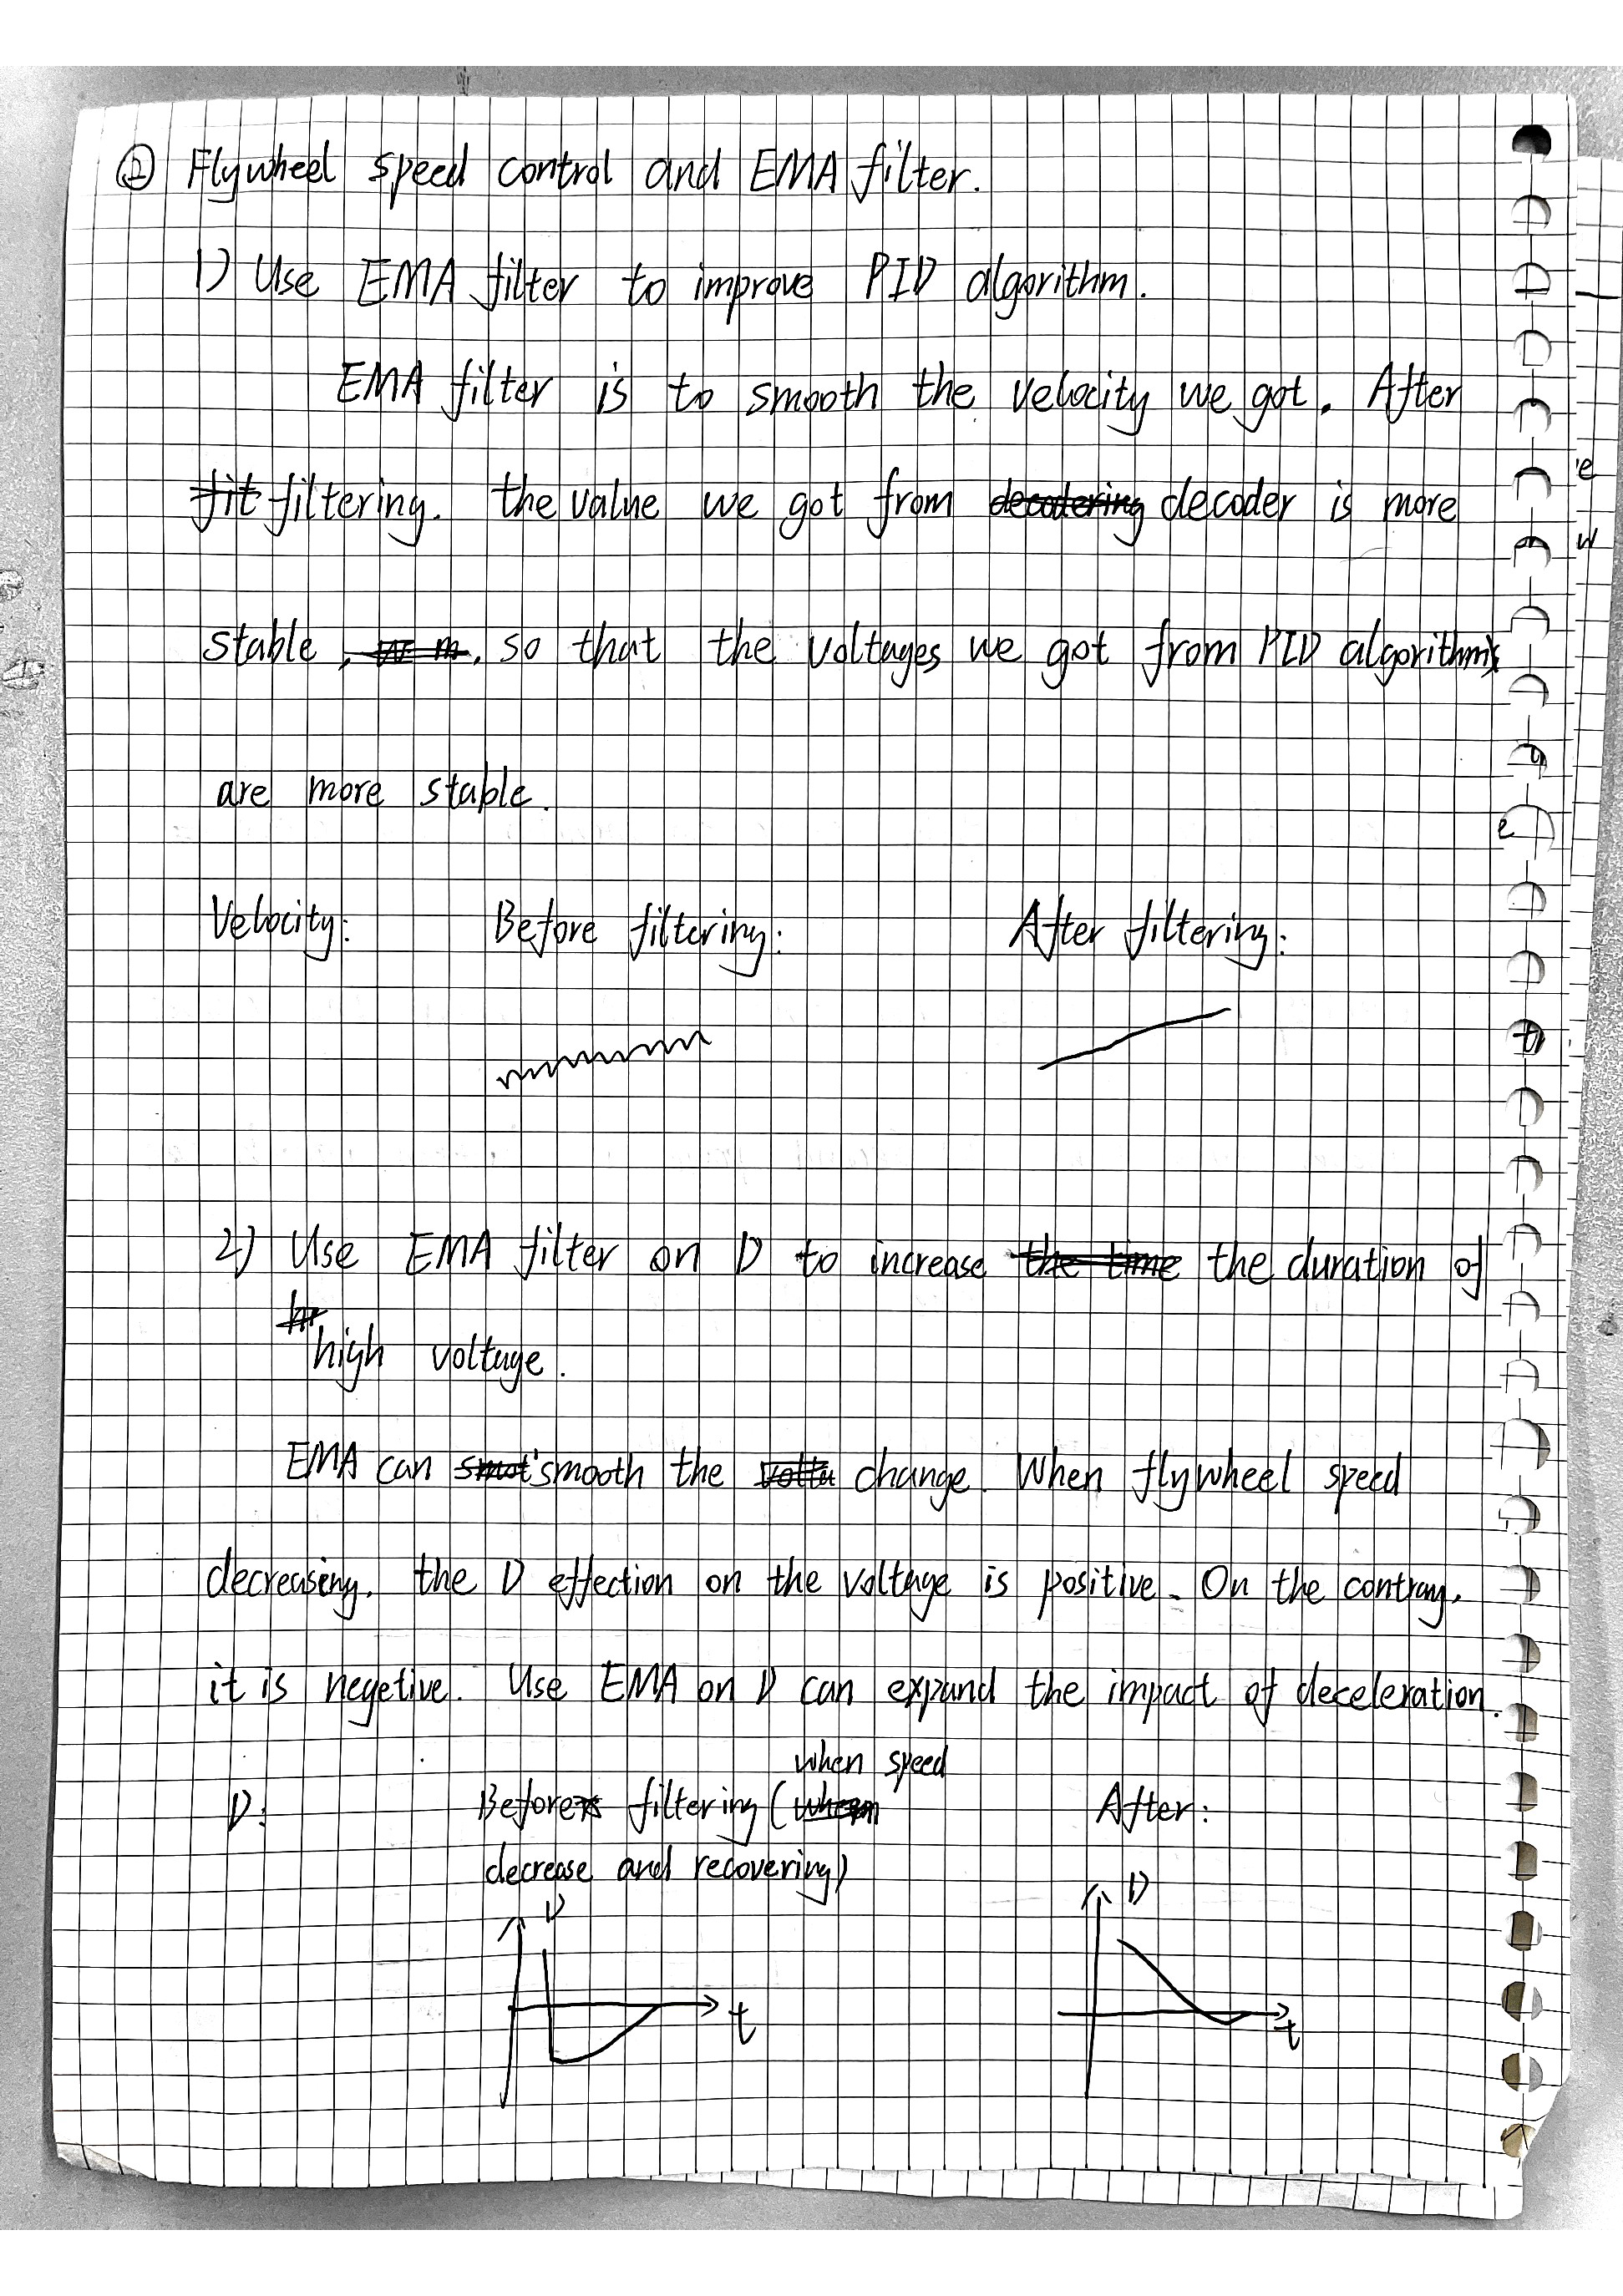 ② Flywheel speed control and EMA filter.
1) Use EMA filter to improve PID algorithm.
EMA filter is to smooth the velocity we got. After
filtering. the value we got from decoder is more
stable, so that the voltages we got from PID algorithm
are more stable.
Velocity: Before filtering: After filtering:
2) Use EMA filter on D to increase the time the duration of
high voltage.
EMA can smooth the change. When flywheel speed
decreasing. the D effection on the voltage is positive. On the contrary,
it is negetive. Use EMA on D can expand the impact of deceleration.
when speed
D: Before filtering ( After:
decrease and recovering)
D D
t t